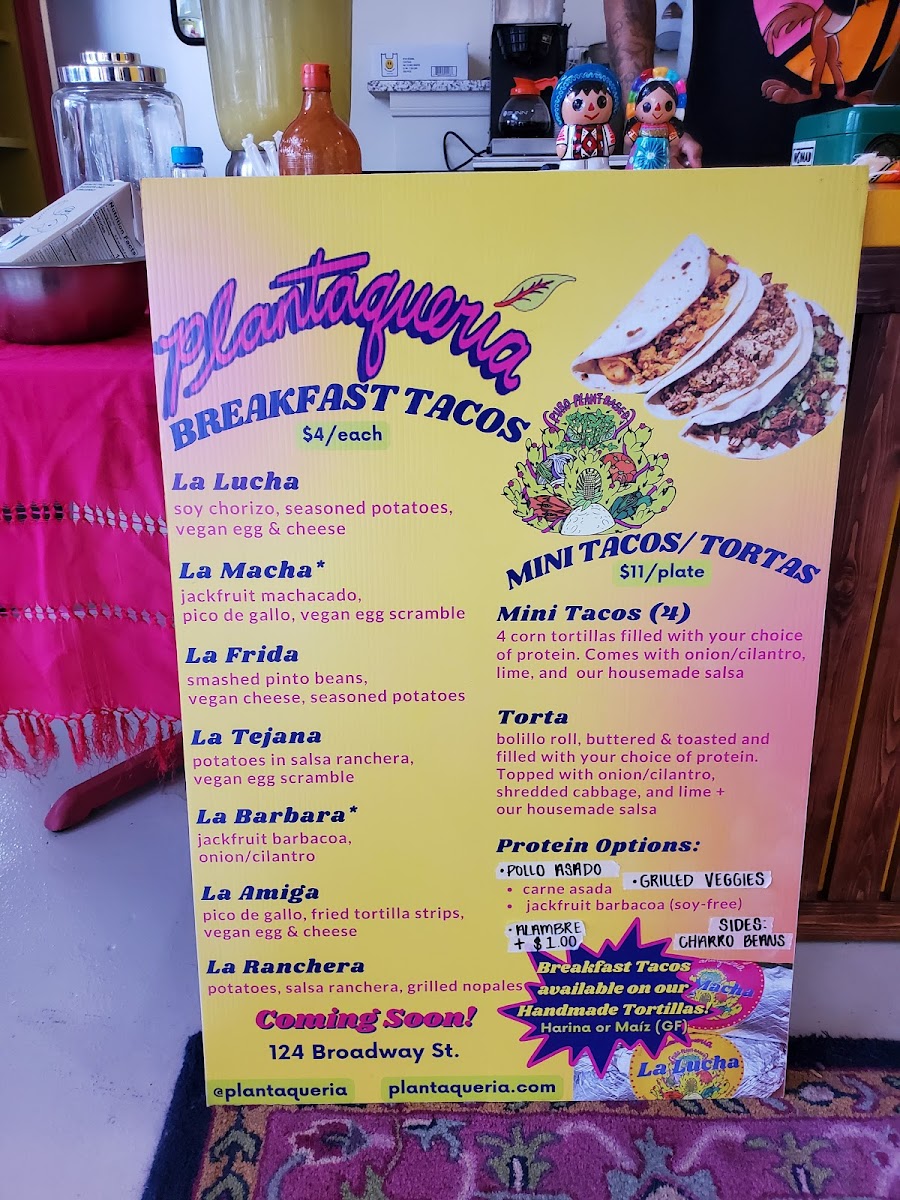 Nutrition Facts
NOMAD
Plantaqueria
BREAKFAST TACOS
$4/each
La Lucha
soy chorizo, seasoned potatoes,
vegan egg & cheese
La Macha*
jackfruit machacado,
pico de gallo, vegan egg scramble
La Frida
smashed pinto beans,
vegan cheese, seasoned potatoes
La Tejana
potatoes in salsa ranchera,
vegan egg scramble
La Barbara*
jackfruit barbacoa,
onion/cilantro
La Amiga
pico de gallo, fried tortilla strips,
vegan egg & cheese
La Ranchera
potatoes, salsa ranchera, grilled nopales
Coming Soon!
124 Broadway St.
@plantaqueria
plantaqueria.com
PURO PLANT BASED
MINI TACOS/TORTAS
$11/plate
Mini Tacos (4)
4 corn tortillas filled with your choice
of protein. Comes with onion/cilantro,
lime, and our housemade salsa
Torta
bolillo roll, buttered & toasted and
filled with your choice of protein.
Topped with onion/cilantro,
shredded cabbage, and lime +
our housemade salsa
Protein Options:
• POLLO ASADO
• GRILLED VEGGIES
• carne asada
• jackfruit barbacoa (soy-free)
• ALAMBRE
+ $1.00
SIDES:
CHARRO BEANS
Breakfast Tacos
available on our
Handmade Tortillas!
Harina or Maíz (GF)
Macha
La Lucha